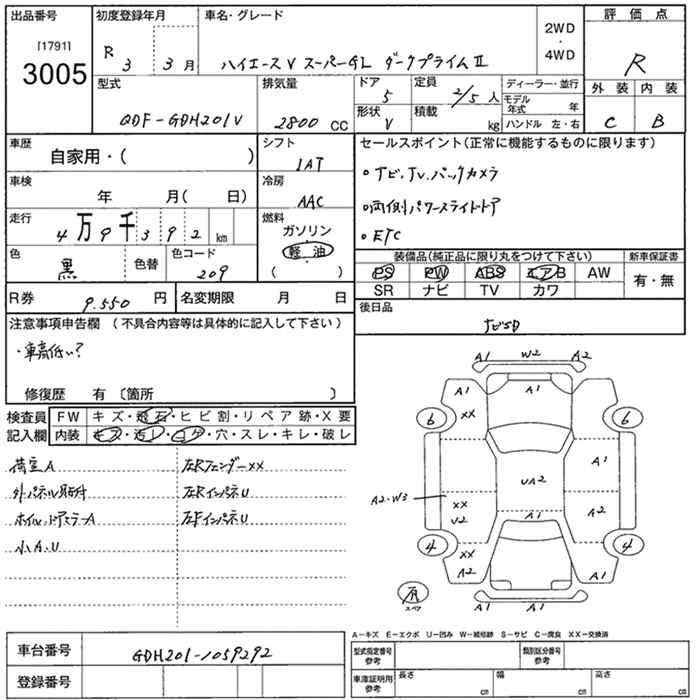 出品番号
[1791]
3005
初度登録年月
R 3 年 3 月
車名・グレード
ハイエースV スーパーGL ダークプライムⅡ
2WD
・
4WD
評価点
R
外装 内装
C B
型式
QDF-GDH201V
排気量
2800 CC
ドア
5
形状
V
定員
2/5 人
積載
kg
ディーラー・並行
モデル年式 年
ハンドル 左・右
車歴
自家用・( )
シフト
IAT
車検
年 月( 日)
冷房
AAC
走行
4万9千392 km
燃料
ガソリン
軽油
( )
色
黒
色替
色コード
209
R券 9.550 円
名変期限 月 日
セールスポイント(正常に機能するものに限ります)
・ナビ.TV.バックカメラ
・両側パワースライドドア
・ETC
装備品(純正品に限り丸をつけて下さい)
PS PW ABS エアB AW
SR ナビ TV カワ
新車保証書
有・無
後日品
ナビSD
注意事項申告欄 (不具合内容等は具体的に記入して下さい)
・車高低い?
修復歴 有 〔箇所 〕
検査員
記入欄
FW キズ・飛石・ヒビ割・リペア跡・X要
内装 キズ・汚レ・コゲ・穴・スレ・キレ・破レ
荷室A
外パネル現物付
ホイル.ドアミラーA
小A.U
左RフェンダーXX
左RインパネU
左FインパネU
A1 W2 A2
A1 A1
XX
6 6
A1
UA2
A2・W3
XX
U2
A2
A1
4 4
XX
A2
A1
有
スペア
A1 A1
A-キズ E-エクボ U-凹み W-補修跡 S-サビ C-腐食 XX-交換済
車台番号
GDH201-1059292
登録番号
型式指定番号
参考
類別区分番号
参考
車庫証明用
参考
長さ cm
幅 cm
高さ cm